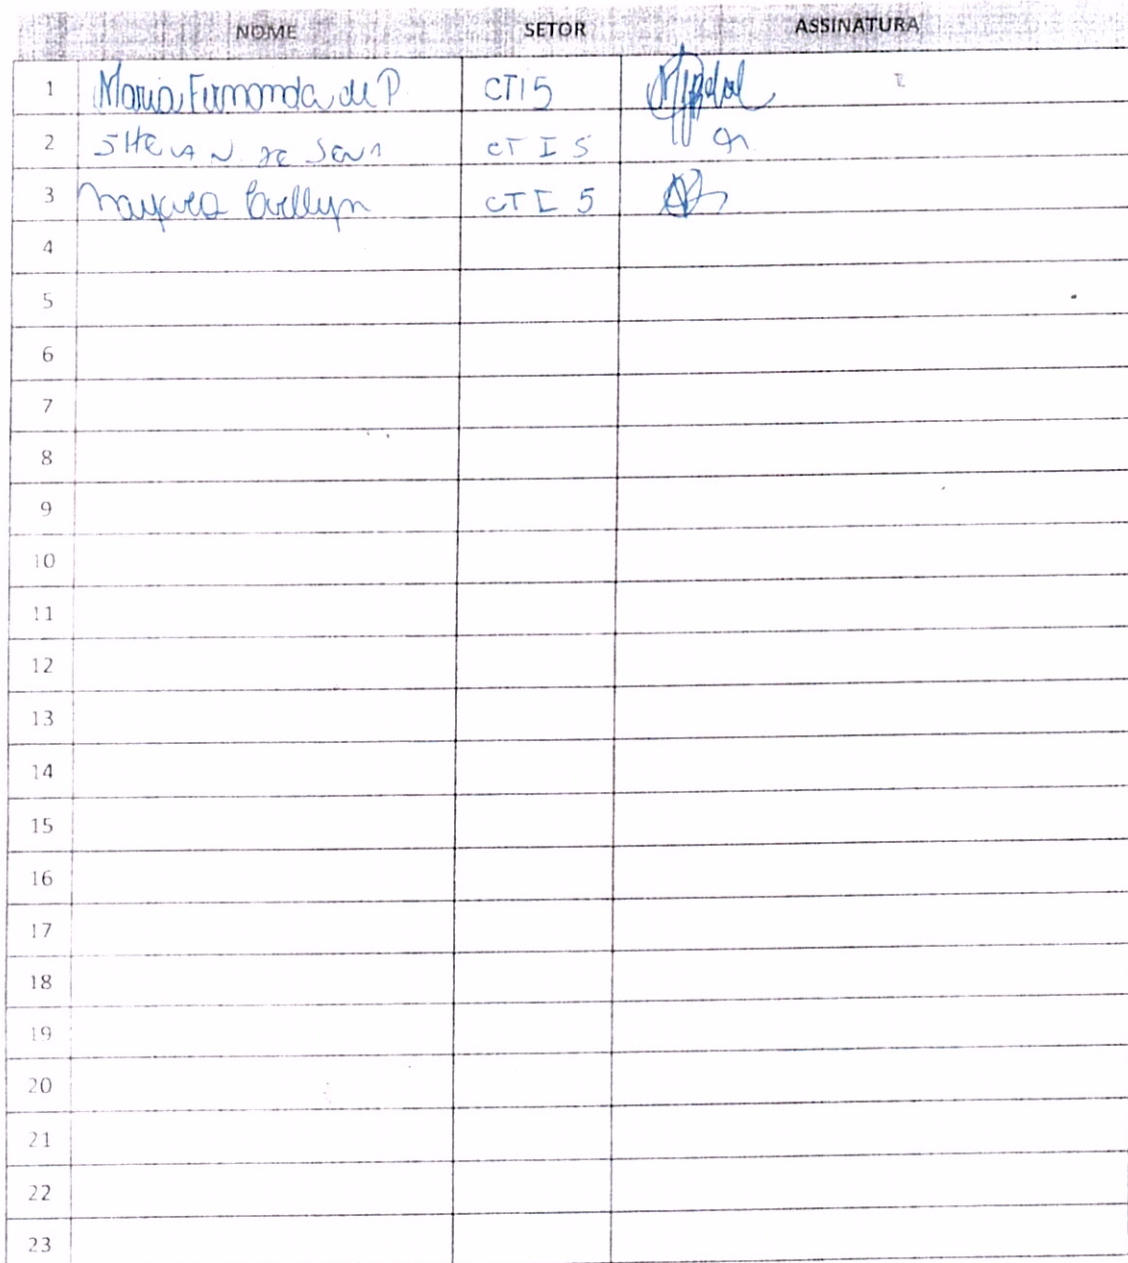 NOME SETOR ASSINATURA
1 Maria Fernanda de P. CTI 5
2 de Sena CTI 5
3 Evellyn CTI 5
4
5
6
7
8
9
10
11
12
13
14
15
16
17
18
19
20
21
22
23